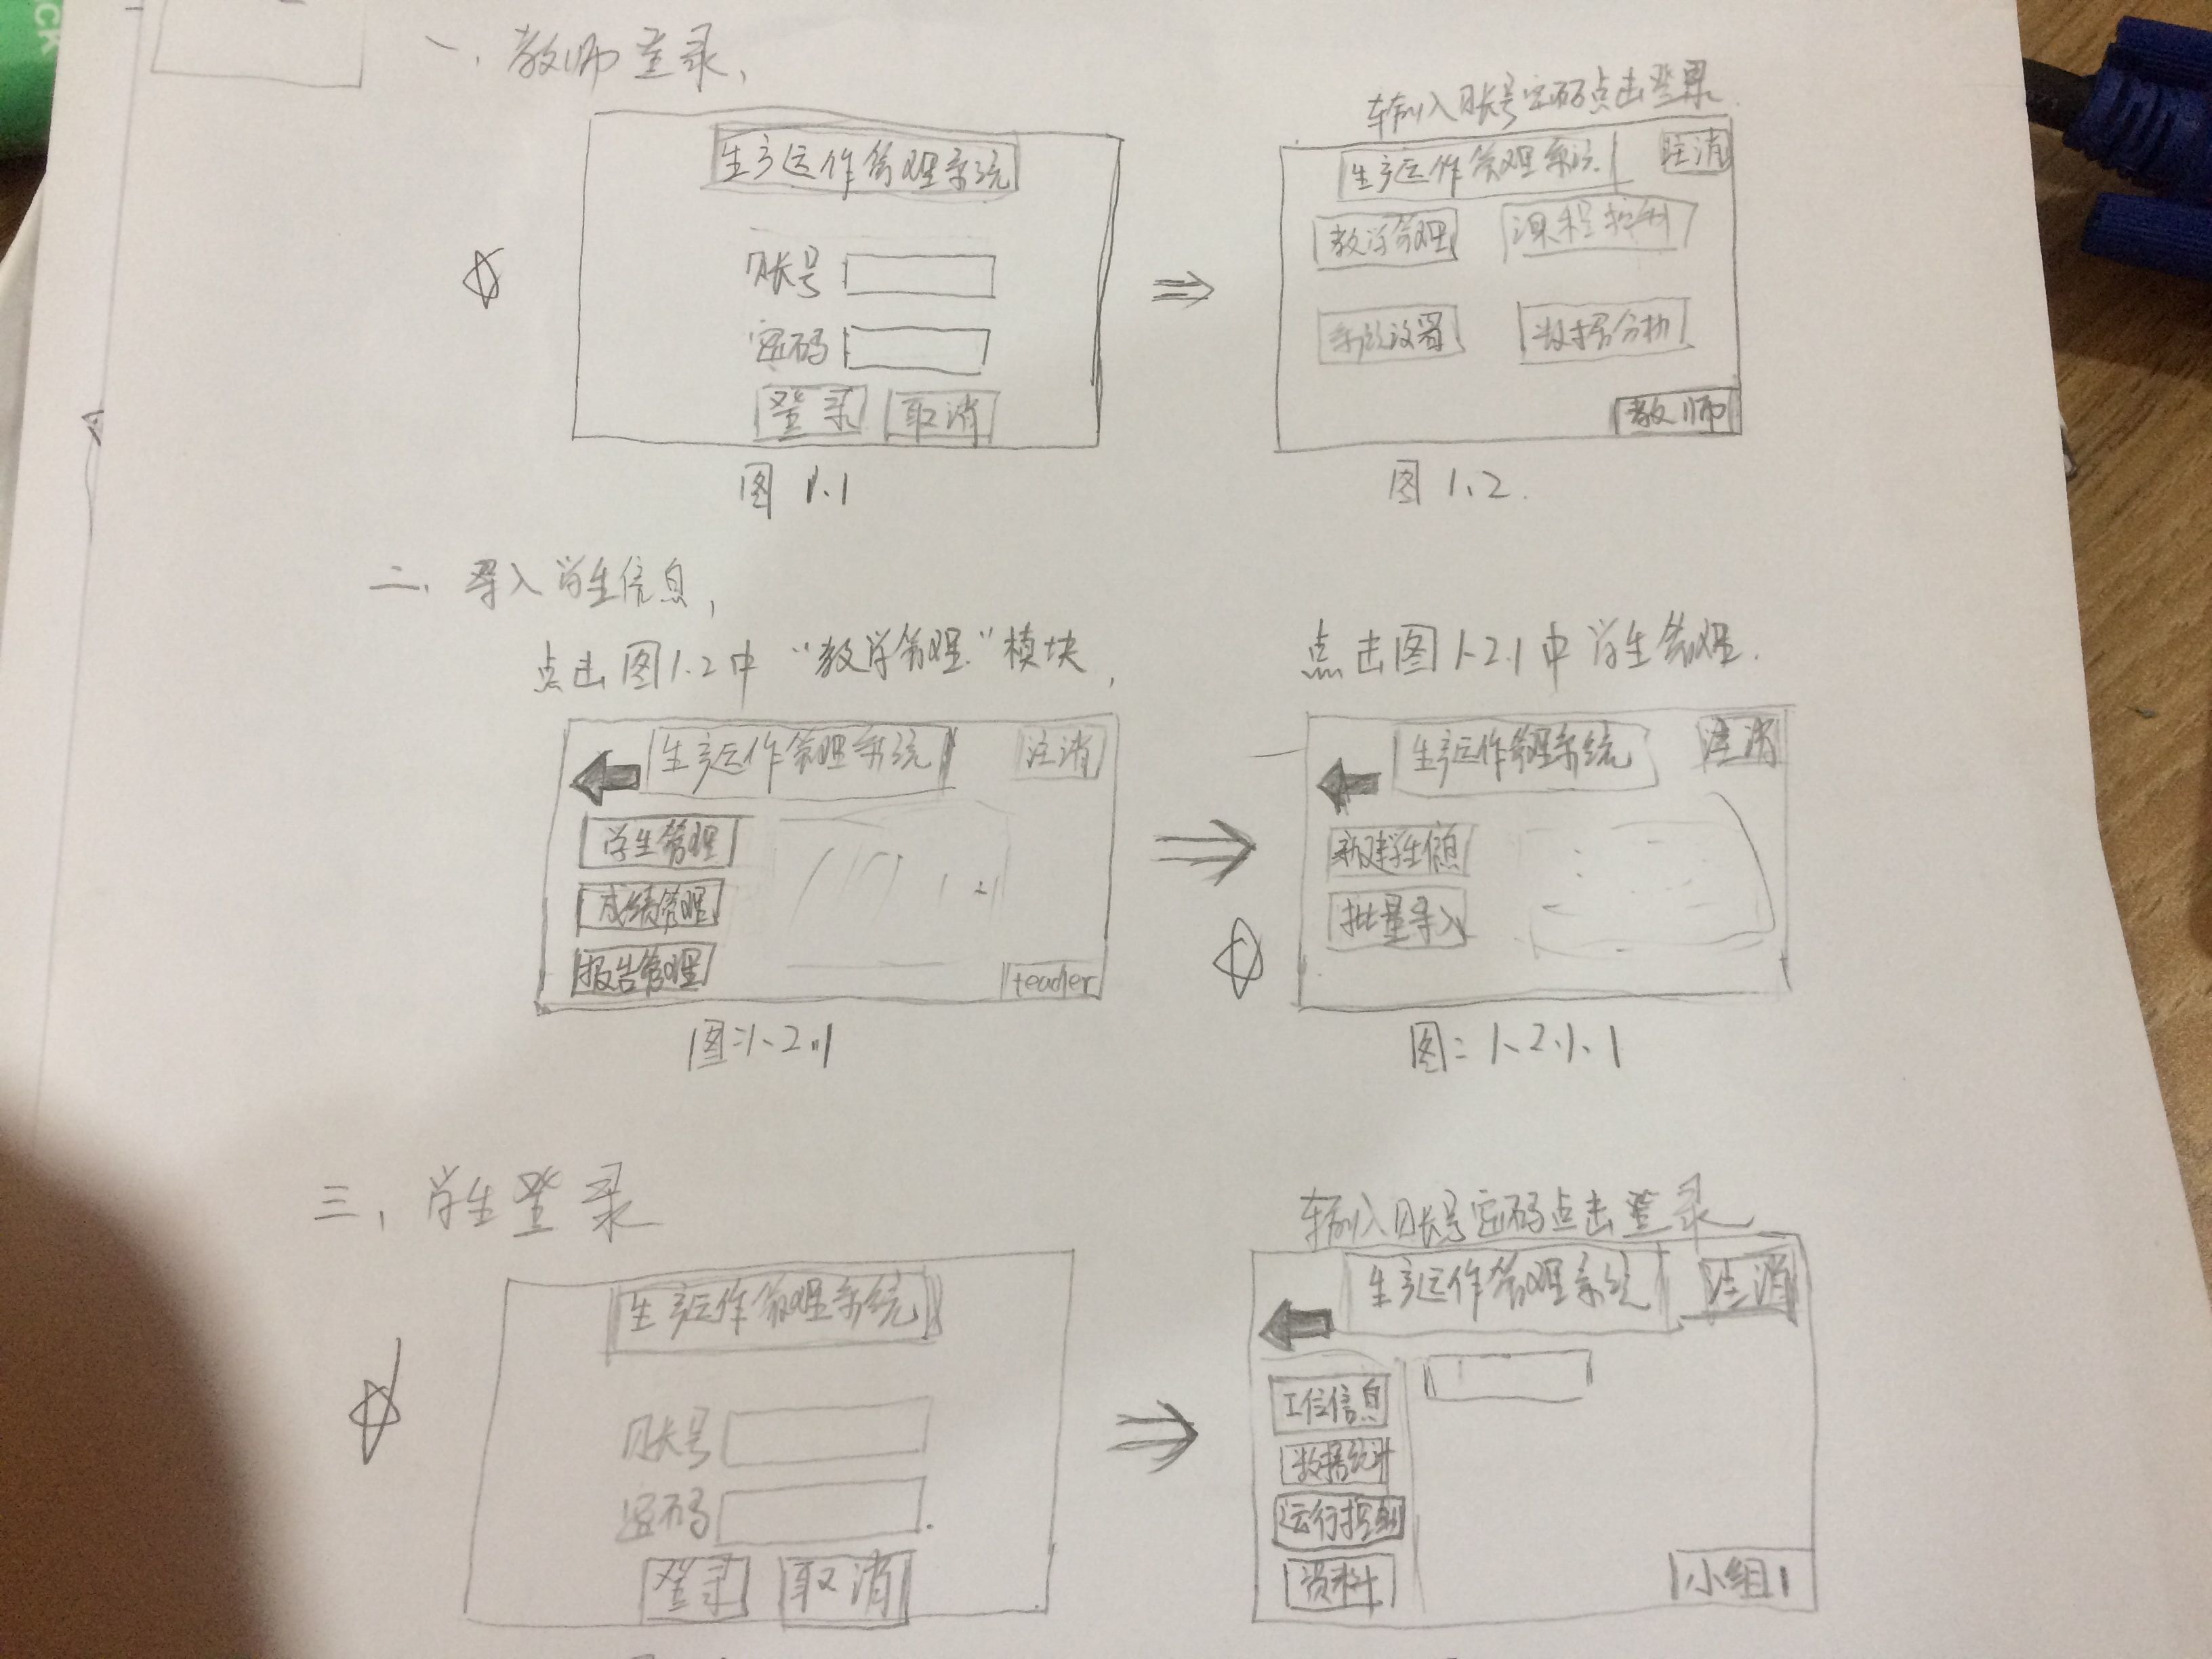 CK
一、教师登录、
生产运作管理系统
账号
密码
登录 取消
图 1.1
输入账号密码点击登录.
生产运作管理系统 注消
教学管理 课程控制
系统设置 数据分析
教师
图 1.2.
二、导入学生信息,
点击图1.2中“教学管理”模块,
生产运作管理系统 注消
学生管理
成绩管理
报告管理
teacher
图:1.2.1
点击图1.2.1中学生管理.
生产运作管理系统 注消
新建学生信息
批量导入
图: 1.2.1.1
三、学生登录
生产运作管理系统
账号
密码
登录 取消
输入账号密码点击登录
生产运作管理系统 注消
工位信息
数据统计
运行控制
资料
小组1